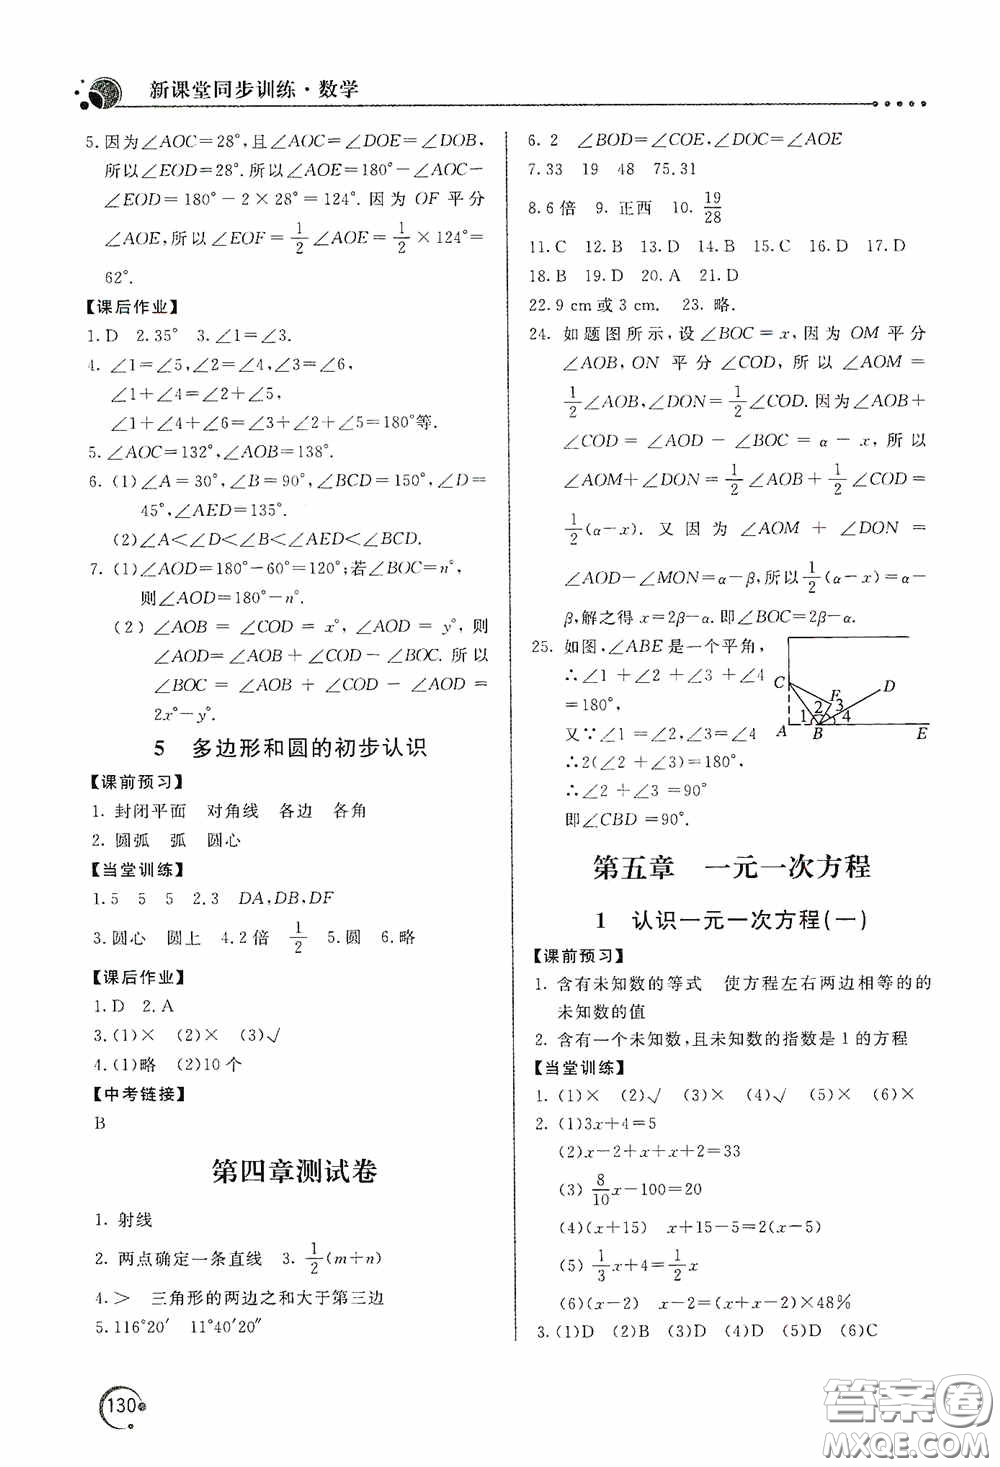 新课堂同步训练·数学
5. 因为∠AOC=28°,且∠AOC=∠DOE=∠DOB,
所以∠EOD=28°.所以∠AOE=180°-∠AOC-
∠EOD=180°-2×28°=124°.因为 OF 平分
∠AOE,所以∠EOF=1/2∠AOE=1/2×124°=
62°.
【课后作业】
1.D 2.35° 3.∠1=∠3.
4. ∠1=∠5,∠2=∠4,∠3=∠6,
∠1+∠4=∠2+∠5,
∠1+∠4+∠6=∠3+∠2+∠5=180°等.
5.∠AOC=132°,∠AOB=138°.
6.(1)∠A=30°,∠B=90°,∠BCD=150°,∠D=
45°,∠AED=135°.
(2)∠A<∠D<∠B<∠AED<∠BCD.
7.(1)∠AOD=180°-60°=120°;若∠BOC=n°,
则∠AOD=180°-n°.
(2)∠AOB=∠COD=x°,∠AOD=y°,则
∠AOD=∠AOB+∠COD-∠BOC.所以
∠BOC=∠AOB+∠COD-∠AOD=
2x°-y°.
5 多边形和圆的初步认识
【课前预习】
1. 封闭平面 对角线 各边 各角
2. 圆弧 弧 圆心
【当堂训练】
1.5 5 5 2.3 DA,DB,DF
3.圆心 圆上 4.2倍 1/2 5.圆 6.略
【课后作业】
1.D 2.A
3.(1)× (2)× (3)√
4.(1)略 (2)10个
【中考链接】
B
第四章测试卷
1. 射线
2. 两点确定一条直线 3. 1/2(m+n)
4.> 三角形的两边之和大于第三边
5.116°20′ 11°40′20″
6.2 ∠BOD=∠COE,∠DOC=∠AOE
7.33 19 48 75.31
8.6倍 9.正西 10. 19/28
11.C 12.B 13.D 14.D 15.C 16.D 17.D
18.B 19.D 20.A 21.D
22.9 cm或3 cm. 23.略.
24. 如题图所示,设∠BOC=x,因为 OM 平分
∠AOB,ON 平分∠COD,所以∠AOM=
1/2∠AOB,∠DON=1/2∠COD.因为∠AOB+
∠COD=∠AOD-∠BOC=α-x,所以
∠AOM+∠DON=1/2∠AOB+1/2∠COD=
1/2(α-x).又因为∠AOM+∠DON=
∠AOD-∠MON=α-β,所以1/2(α-x)=α-
β,解之得 x=2β-α.即∠BOC=2β-α.
25. 如图,∠ABE是一个平角,
∴∠1+∠2+∠3+∠4
=180°,
又∵∠1=∠2,∠3=∠4
∴2(∠2+∠3)=180°,
∴∠2+∠3=90°
即∠CBD=90°.
C
D
1 2 3 4
A B E
第五章 一元一次方程
1 认识一元一次方程(一)
【课前预习】
1. 含有未知数的等式 使方程左右两边相等的的
未知数的值
2. 含有一个未知数,且未知数的指数是1的方程
【当堂训练】
1.(1)× (2)√ (3)× (4)√ (5)× (6)×
2.(1)3x+4=5
(2)x-2+x+x+2=33
(3) 8/10x-100=20
(4)(x+15) x+15-5=2(x-5)
(5) 1/3x+4=1/2x
(6)(x-2) x-2=(x+x-2)×48%
3.(1)D (2)B (3)D (4)D (5)D (6)C
130
答案卷
MXQE.COM